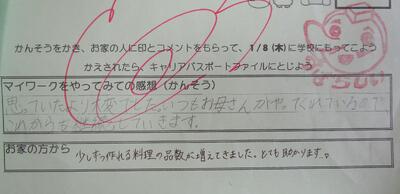 かんそうをかき、お家の人に印とコメントをもらって、1/8(木)に学校にもってこよう
かえされたら、キャリアパスポートファイルにとじよう
マイワークをやってみての感想(かんそう)
思っていたより大変でした。いつもお母さんがやってくれているので
これからも
していきます。
お家の方から
少しずつ作れる料理の品数が増えてきました。とても助かります。